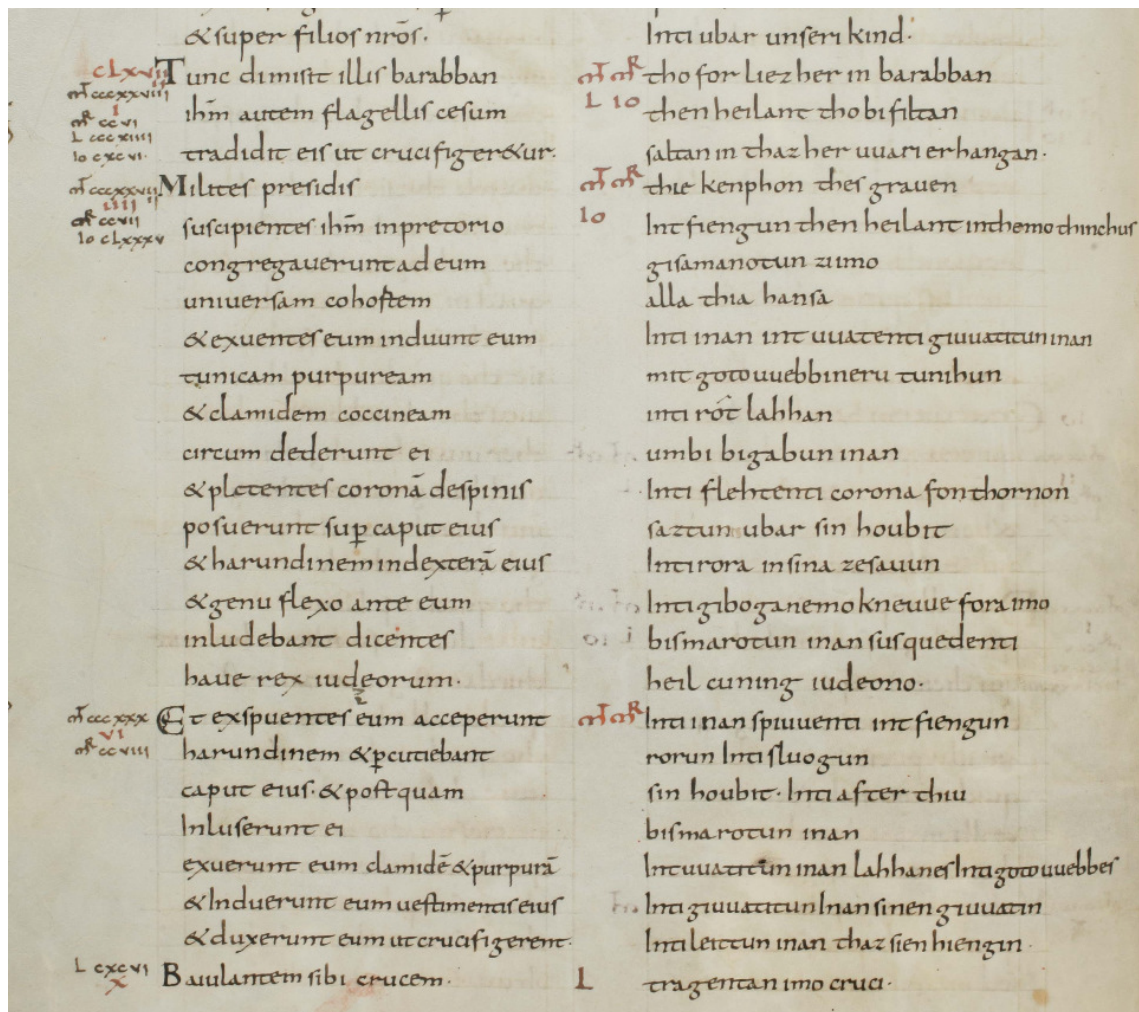 & super filios nr̄os·
Tunc dimisit illis barabban
ihm̄ autem flagellis cesum
tradidit eis ut crucifiger&ur·
Milites presidis
suscipientes ihm̄ in pretorio
congregauerunt ad eum
uniuersam cohortem
& exuentes eum induunt eum
tunicam purpuream
& clamidem coccineam
circum dederunt ei
& plectentes coronā de spinis
posuerunt sup̄ caput eius
& harundinem in dexterā eius
& genu flexo ante eum
inludebant dicentes
haue rex iudeorum·
Et exspuentes eum acceperunt
harundinem & p̄cutiebant
caput eius· & postquam
Inluserunt ei
exuerunt eum clamidē & purpurā
& Induerunt eum uestimentis eius
& duxerunt eum ut crucifigerent·
Baiulantem sibi crucem·
clxvii
mt cccxxviii
i
mr ccvi
L cccxiiii
Io cxcvi·
mt cccxxviiii
iiii
mr ccvii
Io clxxxv
mt cccxxx
vi
mr ccviii
L cxcvi
x
Inti ubar unseri kind·
tho forliez her in barabban
then heilant tho bifiltan
saltan in thaz her uuari erhangan·
thie kenphon thes grauen
Intfiengun then heilant in themo thinchus
gisamanotun zi imo
alla thia hansa
Inti inan intuuatenti giuuatitun inan
mit gotouuebbineru tunihun
inti rôt lahhan
umbi bigabun inan
Inti flehtenti corona fon thornon
saztun ubar sin houbit
Inti rora in sina zesauun
Inti giboganemo kneuue fora imo
bismarotun inan sus quedenti
heil cuning iudeono·
Inti inan spiuuenti intfiengun
rorun Inti sluogun
sin houbit· Inti after thiu
bismarotun inan
Intuuatitun inan lahhanes Inti gotouuebbes
Inti giuuatitun Inan sinen giuuatin
Inti leittun inan thaz sien hiengin·
tragentan imo cruci·
mt mr
L Io
mt mr
Io
mt mr
L